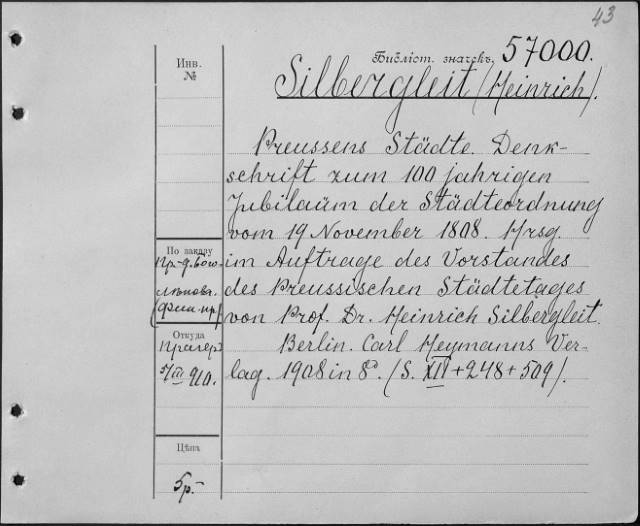 43
Инв.
№
Библіот. значекъ 57000.
Silbergleit (Heinrich).
Preussens Städte. Denk-
schrift zum 100 jahrigen
Jubilaüm der Städteordnung
vom 19 November 1808. Hrsg.
im Auftrage des Vorstandes
des Preussischen Städtetages
von Prof. Dr. Heinrich Silbergleit.
Berlin. Carl Heymanns Ver-
lag. 1908 in 8º. (S. XII+248+509).
По заказу
Откуда
910.
Цѣна
5р.-